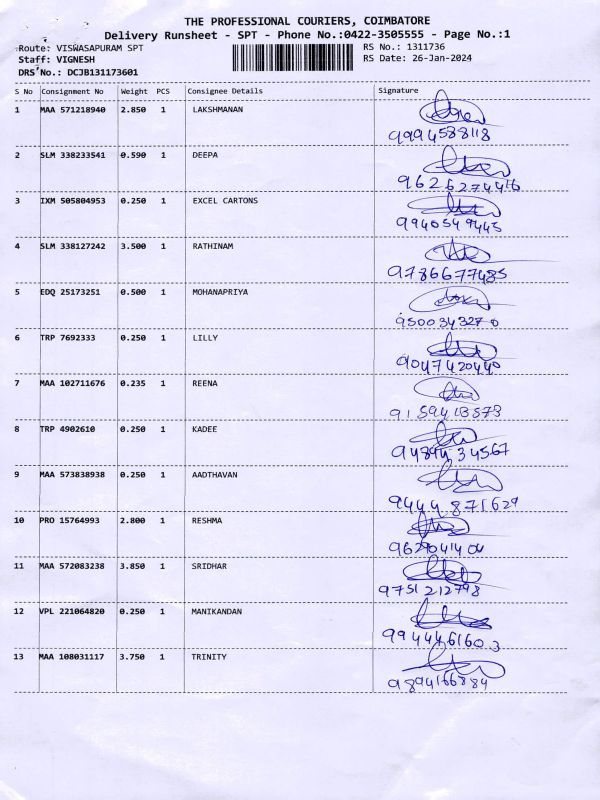 THE PROFESSIONAL COURIERS, COIMBATORE
Delivery Runsheet - SPT - Phone No.:0422-3505555 - Page No.:1
Route: VISWASAPURAM SPT RS No.: 1311736
Staff: VIGNESH RS Date: 26-Jan-2024
DRS No.: DCJB131173601
S No Consignment No Weight PCS Consignee Details Signature
1 MAA 571218940 2.850 1 LAKSHMANAN
9994588118
2 SLM 338233541 0.590 1 DEEPA
9626274416
3 IXM 505804953 0.250 1 EXCEL CARTONS
9940549445
4 SLM 338127242 3.500 1 RATHINAM
9786677485
5 EDQ 25173251 0.500 1 MOHANAPRIYA
9500343270
6 TRP 7692333 0.250 1 LILLY
9047420440
7 MAA 102711676 0.235 1 REENA
9159413573
8 TRP 4902610 0.250 1 KADEE
9489434567
9 MAA 573838938 0.250 1 AADTHAVAN
9444871629
10 PRO 15764993 2.800 1 RESHMA
11 MAA 572083238 3.850 1 SRIDHAR
9751212798
12 VPL 221064820 0.250 1 MANIKANDAN
9944461603
13 MAA 108031117 3.750 1 TRINITY
9894166884